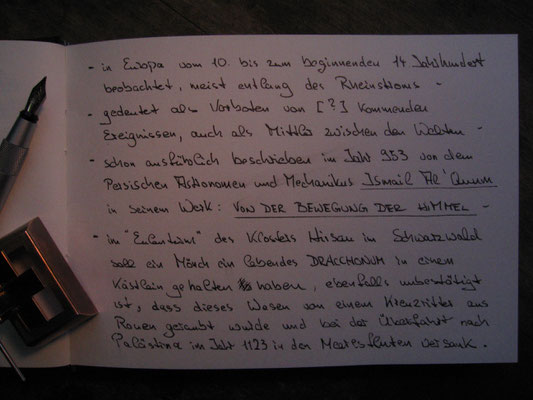 - in Europa vom 10. bis zum beginnenden 14 Jahrhundert
beobachtet, meist entlang des Rheinstroms -
- gedeutet als Vorboten von [?] kommenden
Ereignissen, auch als Mittler zwischen den Welten -
- schon ausführlich beschrieben im Jahr 953 von dem
Persischen Astronomen und Mechanikus Ismail Al'
in seinem Werk: VON DER BEWEGUNG DER HIMMEL -
- im des Klosters Hirsau im Schwarzwald
soll ein Mönch ein lebendes DRACCHONUM in einem
Kästlein gehalten haben, ebenfalls unbestätigt
ist, dass dieses Wesen von einem Kreuzritter aus
Rouen geraubt wurde und bei der Überfahrt nach
Palästina im Jahr 1123 in den Meeresfluten versank.